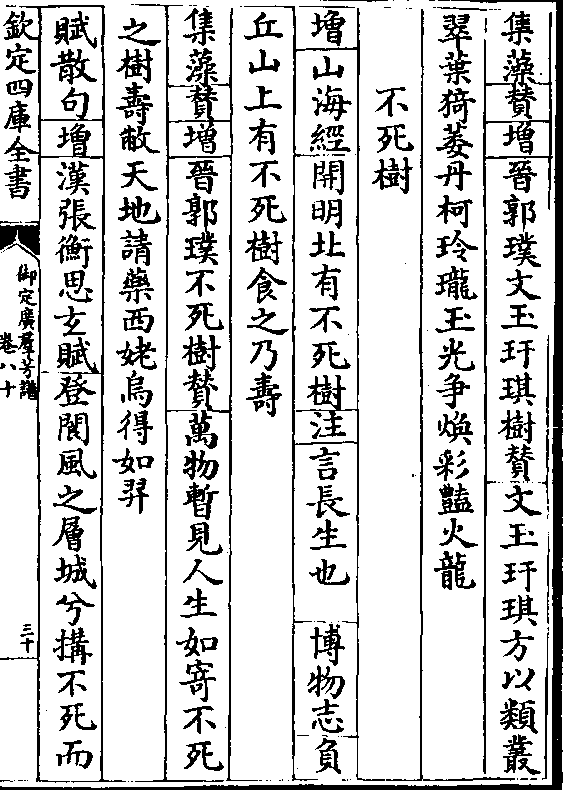 集藻贊增晉郭璞文玉玗琪樹贊文玉玗琪方以類叢
翠葉猗萎丹柯玲瓏玉光争煥彩豔火龍
不死樹
增山海經開明北有不死樹注言長生也 博物志負
丘山上有不死樹食之乃壽
集藻贊增晉郭璞不死樹贊萬物暫見人生如寄不死
之樹壽敝天地請藥西姥烏得如羿
賦散句增漢張衡思玄賦登閬風之層城兮搆不死而
欽定四庫全書
御定廣羣芳譜
卷八十
三十